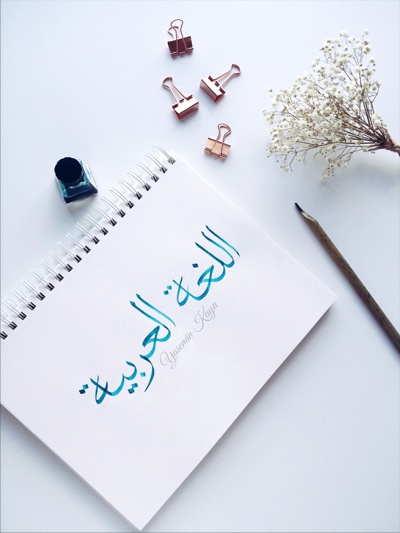 اللغة العربية
Yasemin Kaya